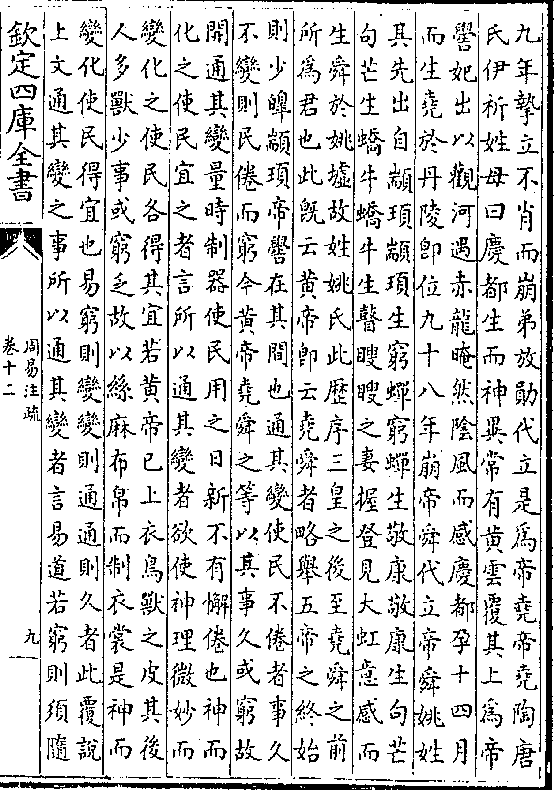 九年摯立不肖而崩弟放勛代立是為帝堯帝堯陶唐
氏伊祈姓母曰慶都生而神異常有黄雲覆其上為帝
嚳妃出以觀河遇赤龍晻然陰風而感慶都孕十四月
而生堯於丹陵即位九十八年崩帝舜代立帝舜姚姓
其先出自顓頊顓頊生窮蟬窮蟬生敬康敬康生句芒
句芒生蟜牛蟜牛生瞽瞍瞍之妻握登見大虹意感而
生舜於姚墟故姓姚氏此歴序三皇之後至堯舜之前
所為君也此旣云黄帝即云堯舜者略舉五帝之終始
則少皥顓頊帝嚳在其間也通其變使民不倦者事久
不變則民倦而窮今黄帝堯舜之等以其事久或窮故
開通其變量時制器使民用之日新不有懈倦也神而
化之使民宜之者言所以通其變者欲使神理微妙而
變化之使民各得其宜若黄帝已上衣鳥獸之皮其後
人多獸少事或窮乏故以絲麻布帛而制衣裳是神而
變化使民得宜也易窮則變變則通通則久者此覆說
上文通其變之事所以通其變者言易道若窮則須隨
欽定四庫全書
周易注疏
卷十二
九